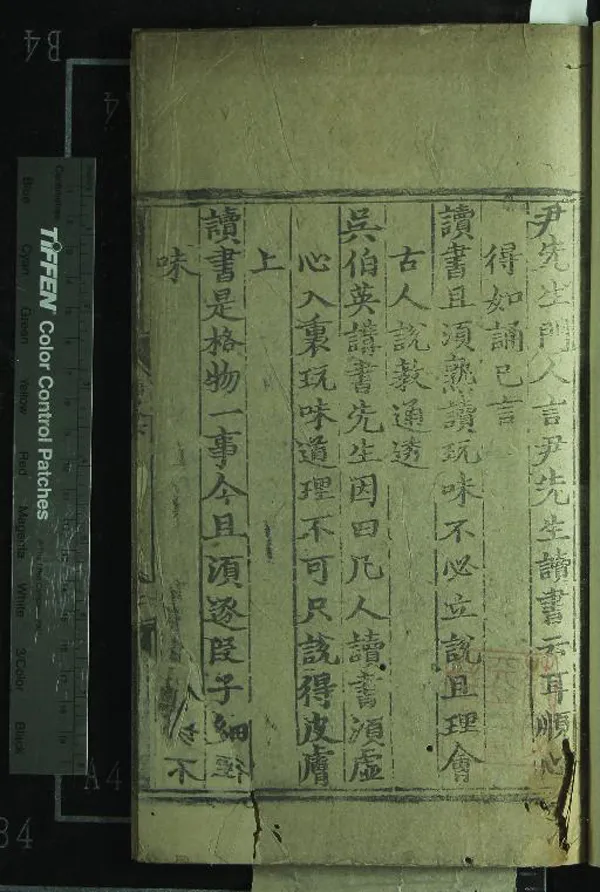 尹先生門人言尹先生讀書云耳順心
得如誦已言
讀書且須熟讀玩味不必立說且理會
古人說教通透
吳伯英講書先生因曰凡人讀書須虛
心入裏玩味道理不可只說得皮膚
上
讀書是格物一事今且須逐段子細
味
不
TIFFEN Color Control Patches
Blue
Cyan
Green
Yellow
Red
Magenta
White
3/Color
Black
B4
A4
A4
B4